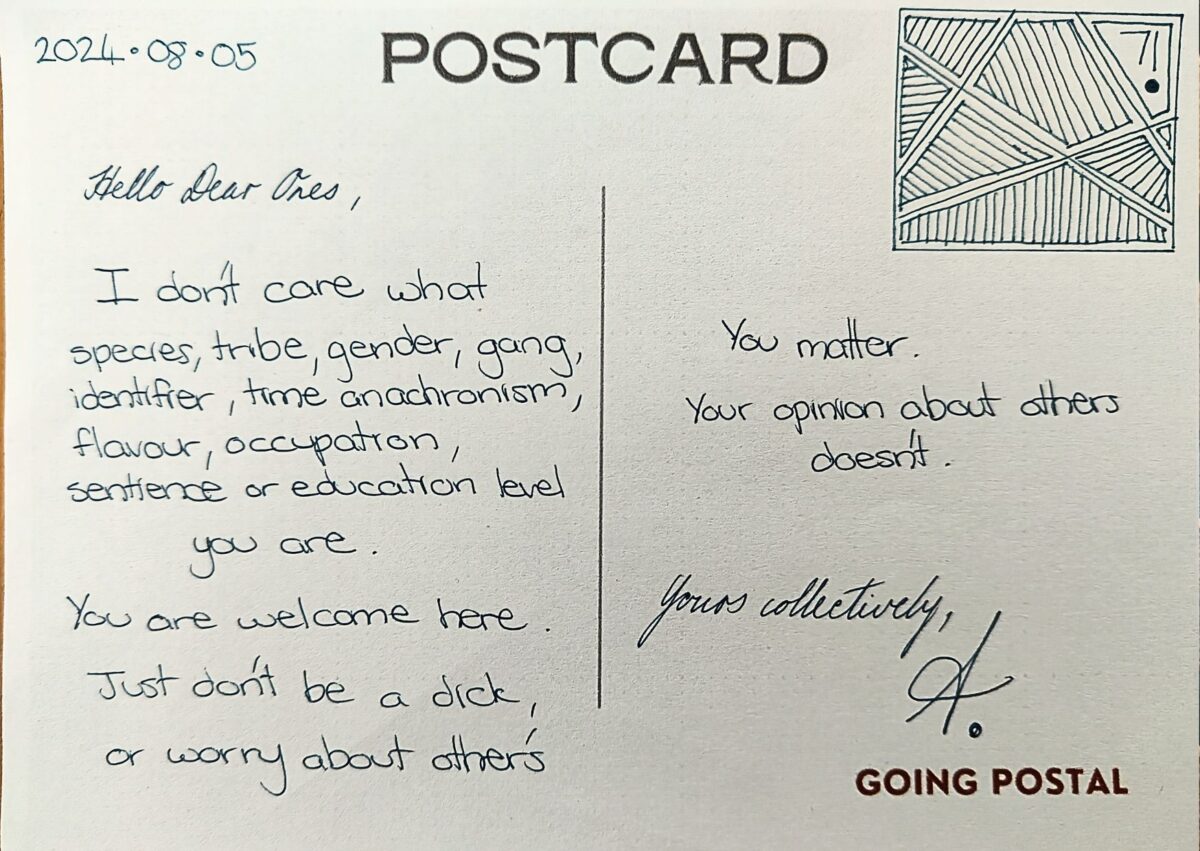 2024·08·05
POSTCARD
71.
Hello Dear Ones,
I don't care what
species, tribe, gender, gang,
identifier, time anachronism,
flavour, occupation,
sentience or education level
you are.
You are welcome here.
Just don't be a dick,
or worry about other's
You matter.
Your opinion about others
doesn't.
Yours collectively,
A.
GOING POSTAL